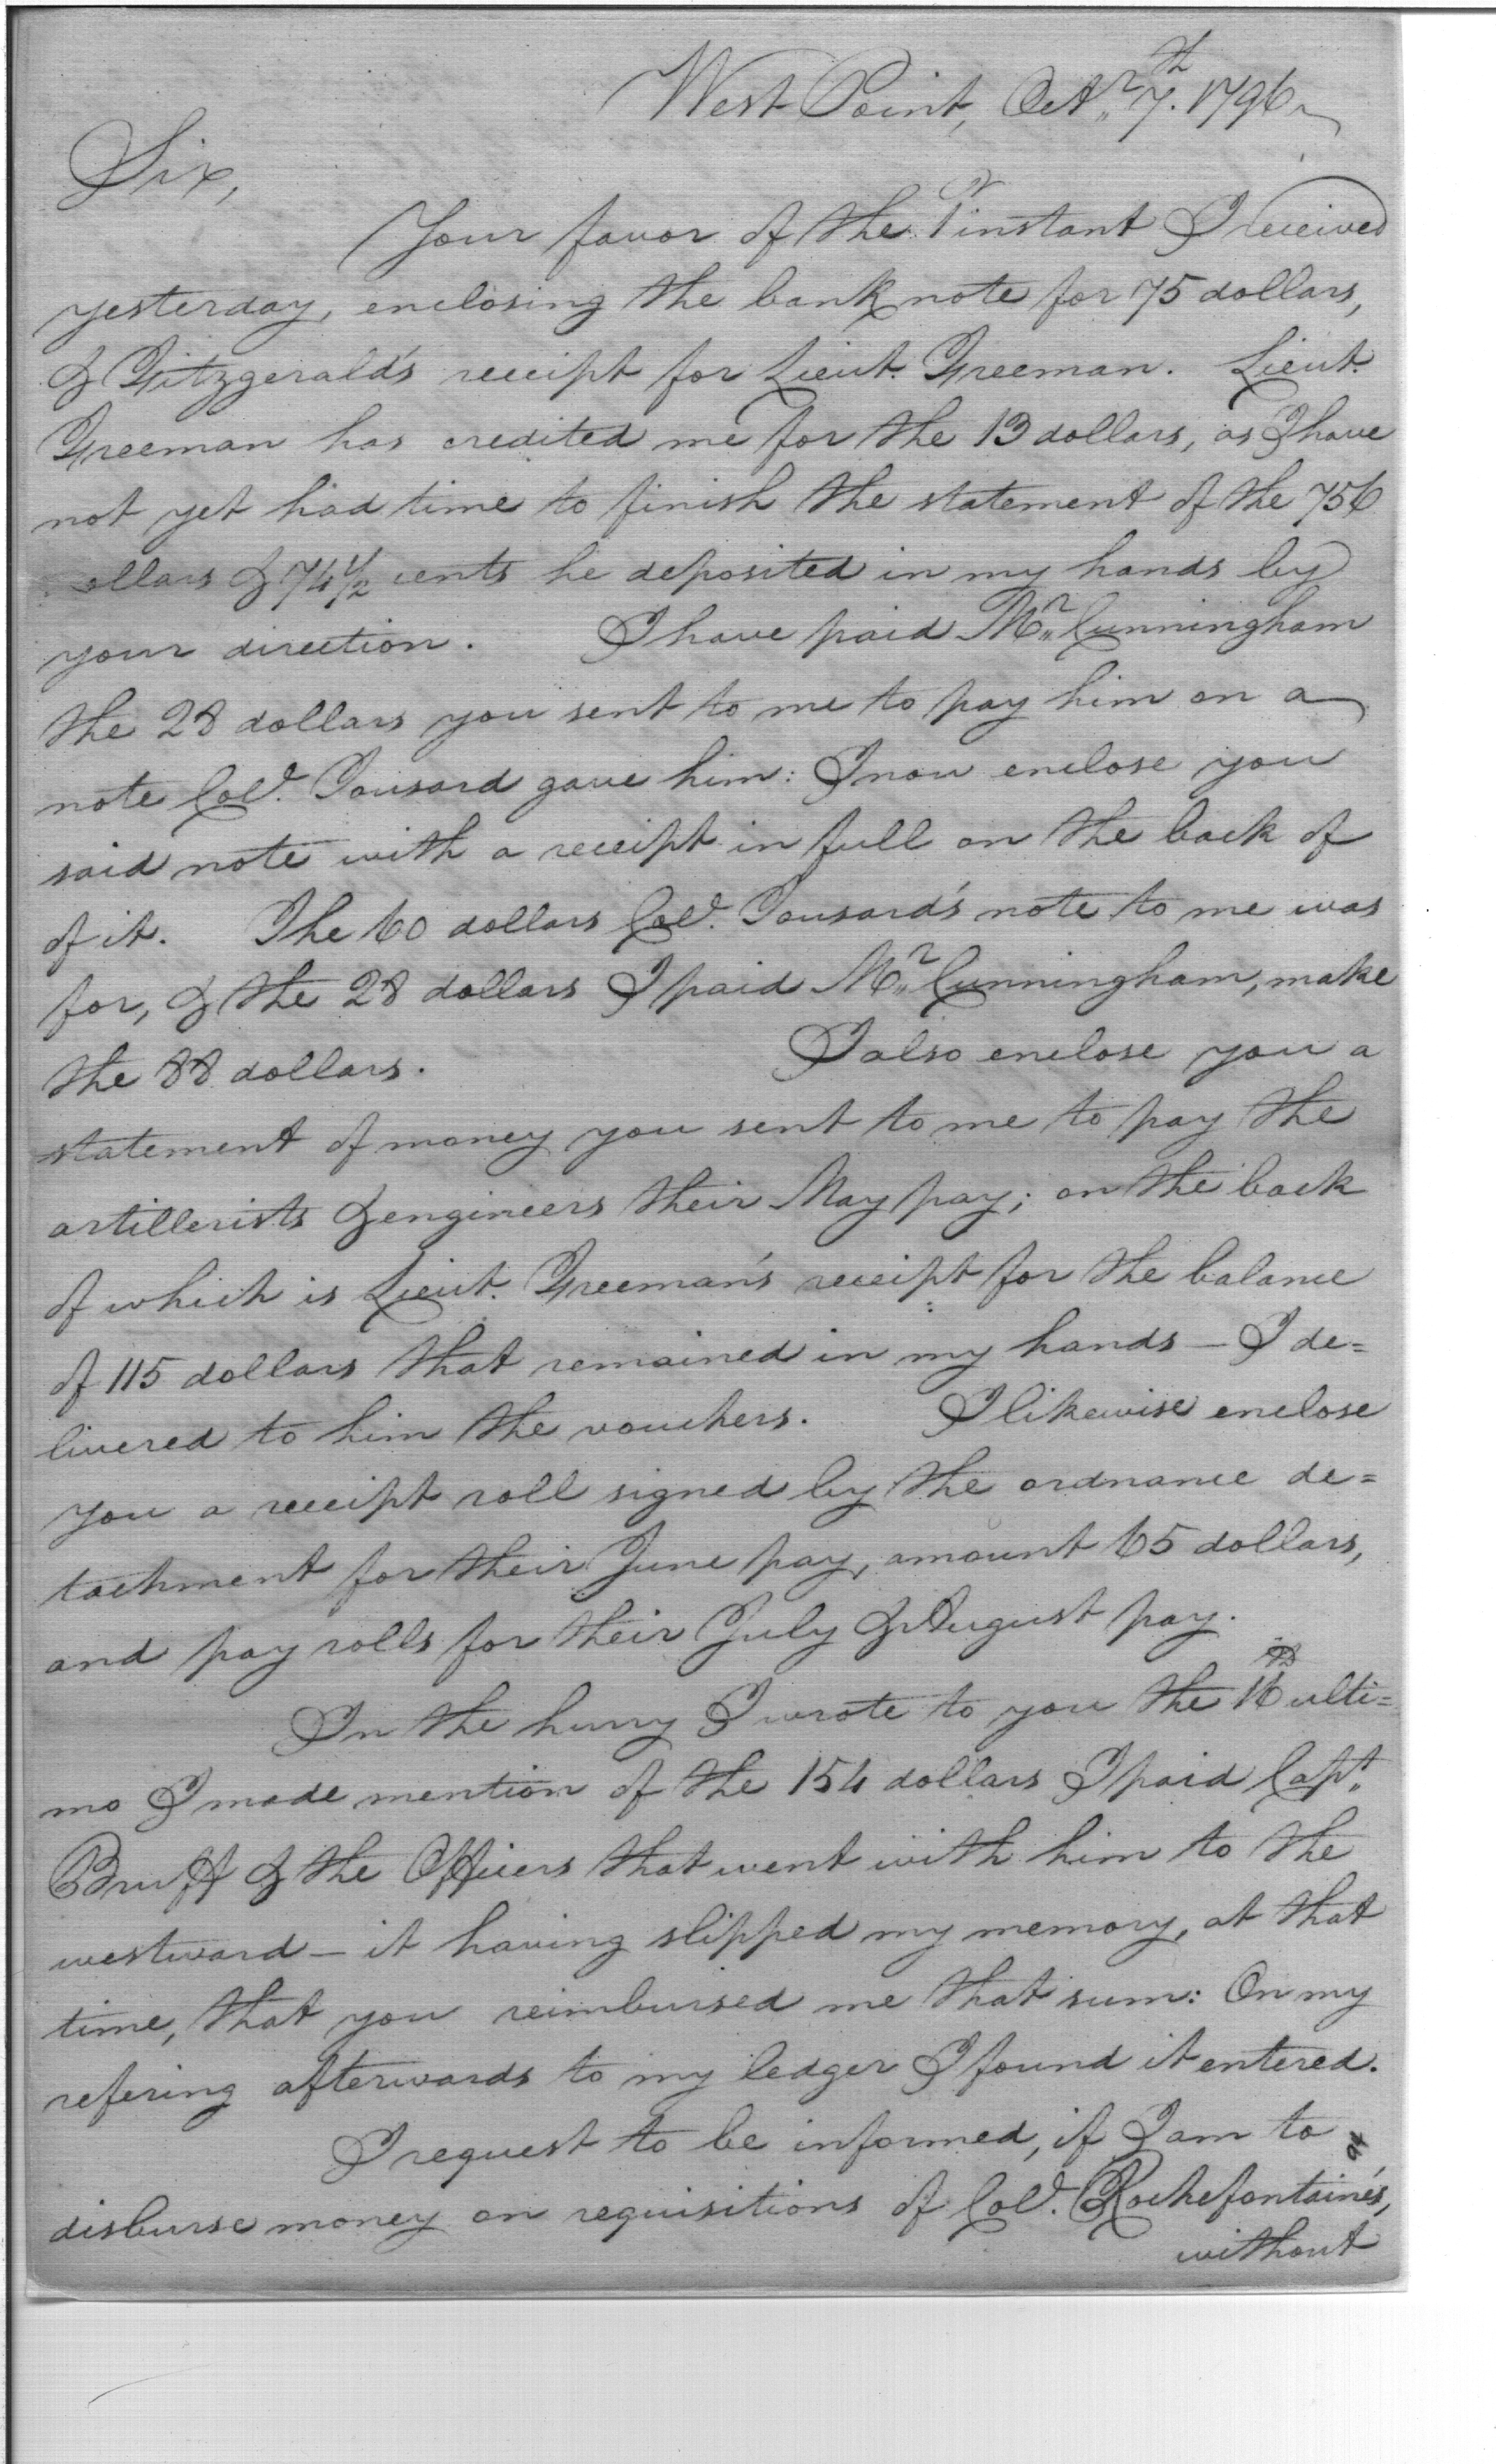 West Point, Octr. 7th. 1796
Sir,
Your favor of the 1r instant I received
yesterday, enclosing the bank note for 75 dollars,
& Fitzgerald's receipt for Lieut. Freeman. Lieut.
Freeman has credited me for the 13 dollars, as I have
not yet had time to finish the statement of the 756
ollars & 74 1/2 cents he deposited in my hands by
your direction. I have paid Mr. Cunningham
the 28 dollars you sent to me to pay him on a
note Col. Tousard gave him: I now enclose you
said note with a receipt in full on the back of
of it. The 60 dollars Col. Tousard's note to me was
for, & the 28 dollars I paid Mr. Cunningham, make
the 88 dollars. I also enclose you a
statement of money you sent to me to pay the
artillerists & engineers their May pay; on the back
of which is Lieut. Freeman's receipt for the balance
of 115 dollars that remained in my hands — I de=
livered to him the vouchers. I likewise enclose
you a receipt roll signed by the ordnance de=
tachment for their June pay, amount 65 dollars,
and pay rolls for their July & August pay.
In the hurry I wrote to you the 16th ulti=
mo I made mention of the 154 dollars I paid Capt.
Bruff & the Officers that went with him to the
westward — it having slipped my memory, at that
time, that you reimbursed me that sum: On my
refering afterwards to my ledger I found it entered.
I request to be informed, if I am to
disburse money on requisitions of Col. Rochefontaine's,
without